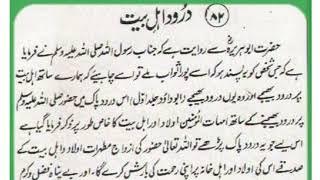 ۸۲ درود اہل بیت
حضرت ابو ہریرہؓ سے روایت ہے کہ جناب رسول اللہ صلی اللہ علیہ وسلم نے فرمایا
ہے کہ جس شخص کو یہ پسند ہو کہ اسے پورا ثواب ملے تو اسے چاہیے کہ ہمارے ساتھ اہل بیت
پر درود بھیجے اور وہ یوں درود بھیجے (ابو داؤد جلد اوّل) اس درود پاک میں حضور صلی اللہ علیہ وسلم
پر درود بھیجنے کے ساتھ امہات المؤمنین اولاد اور اہل بیت کا خاص طور پر ذکر فرمایا گیا ہے
اس لیے جو یہ درود پاک پڑھے تو اللہ تعالیٰ حضور کی ازواج مطہرات اولاد و اہل بیت کے
صدقے اس کی اولاد اور اہل خانہ پر اپنی رحمت کی بارش کرے گا۔ اور بے پناہ فضل و کرم